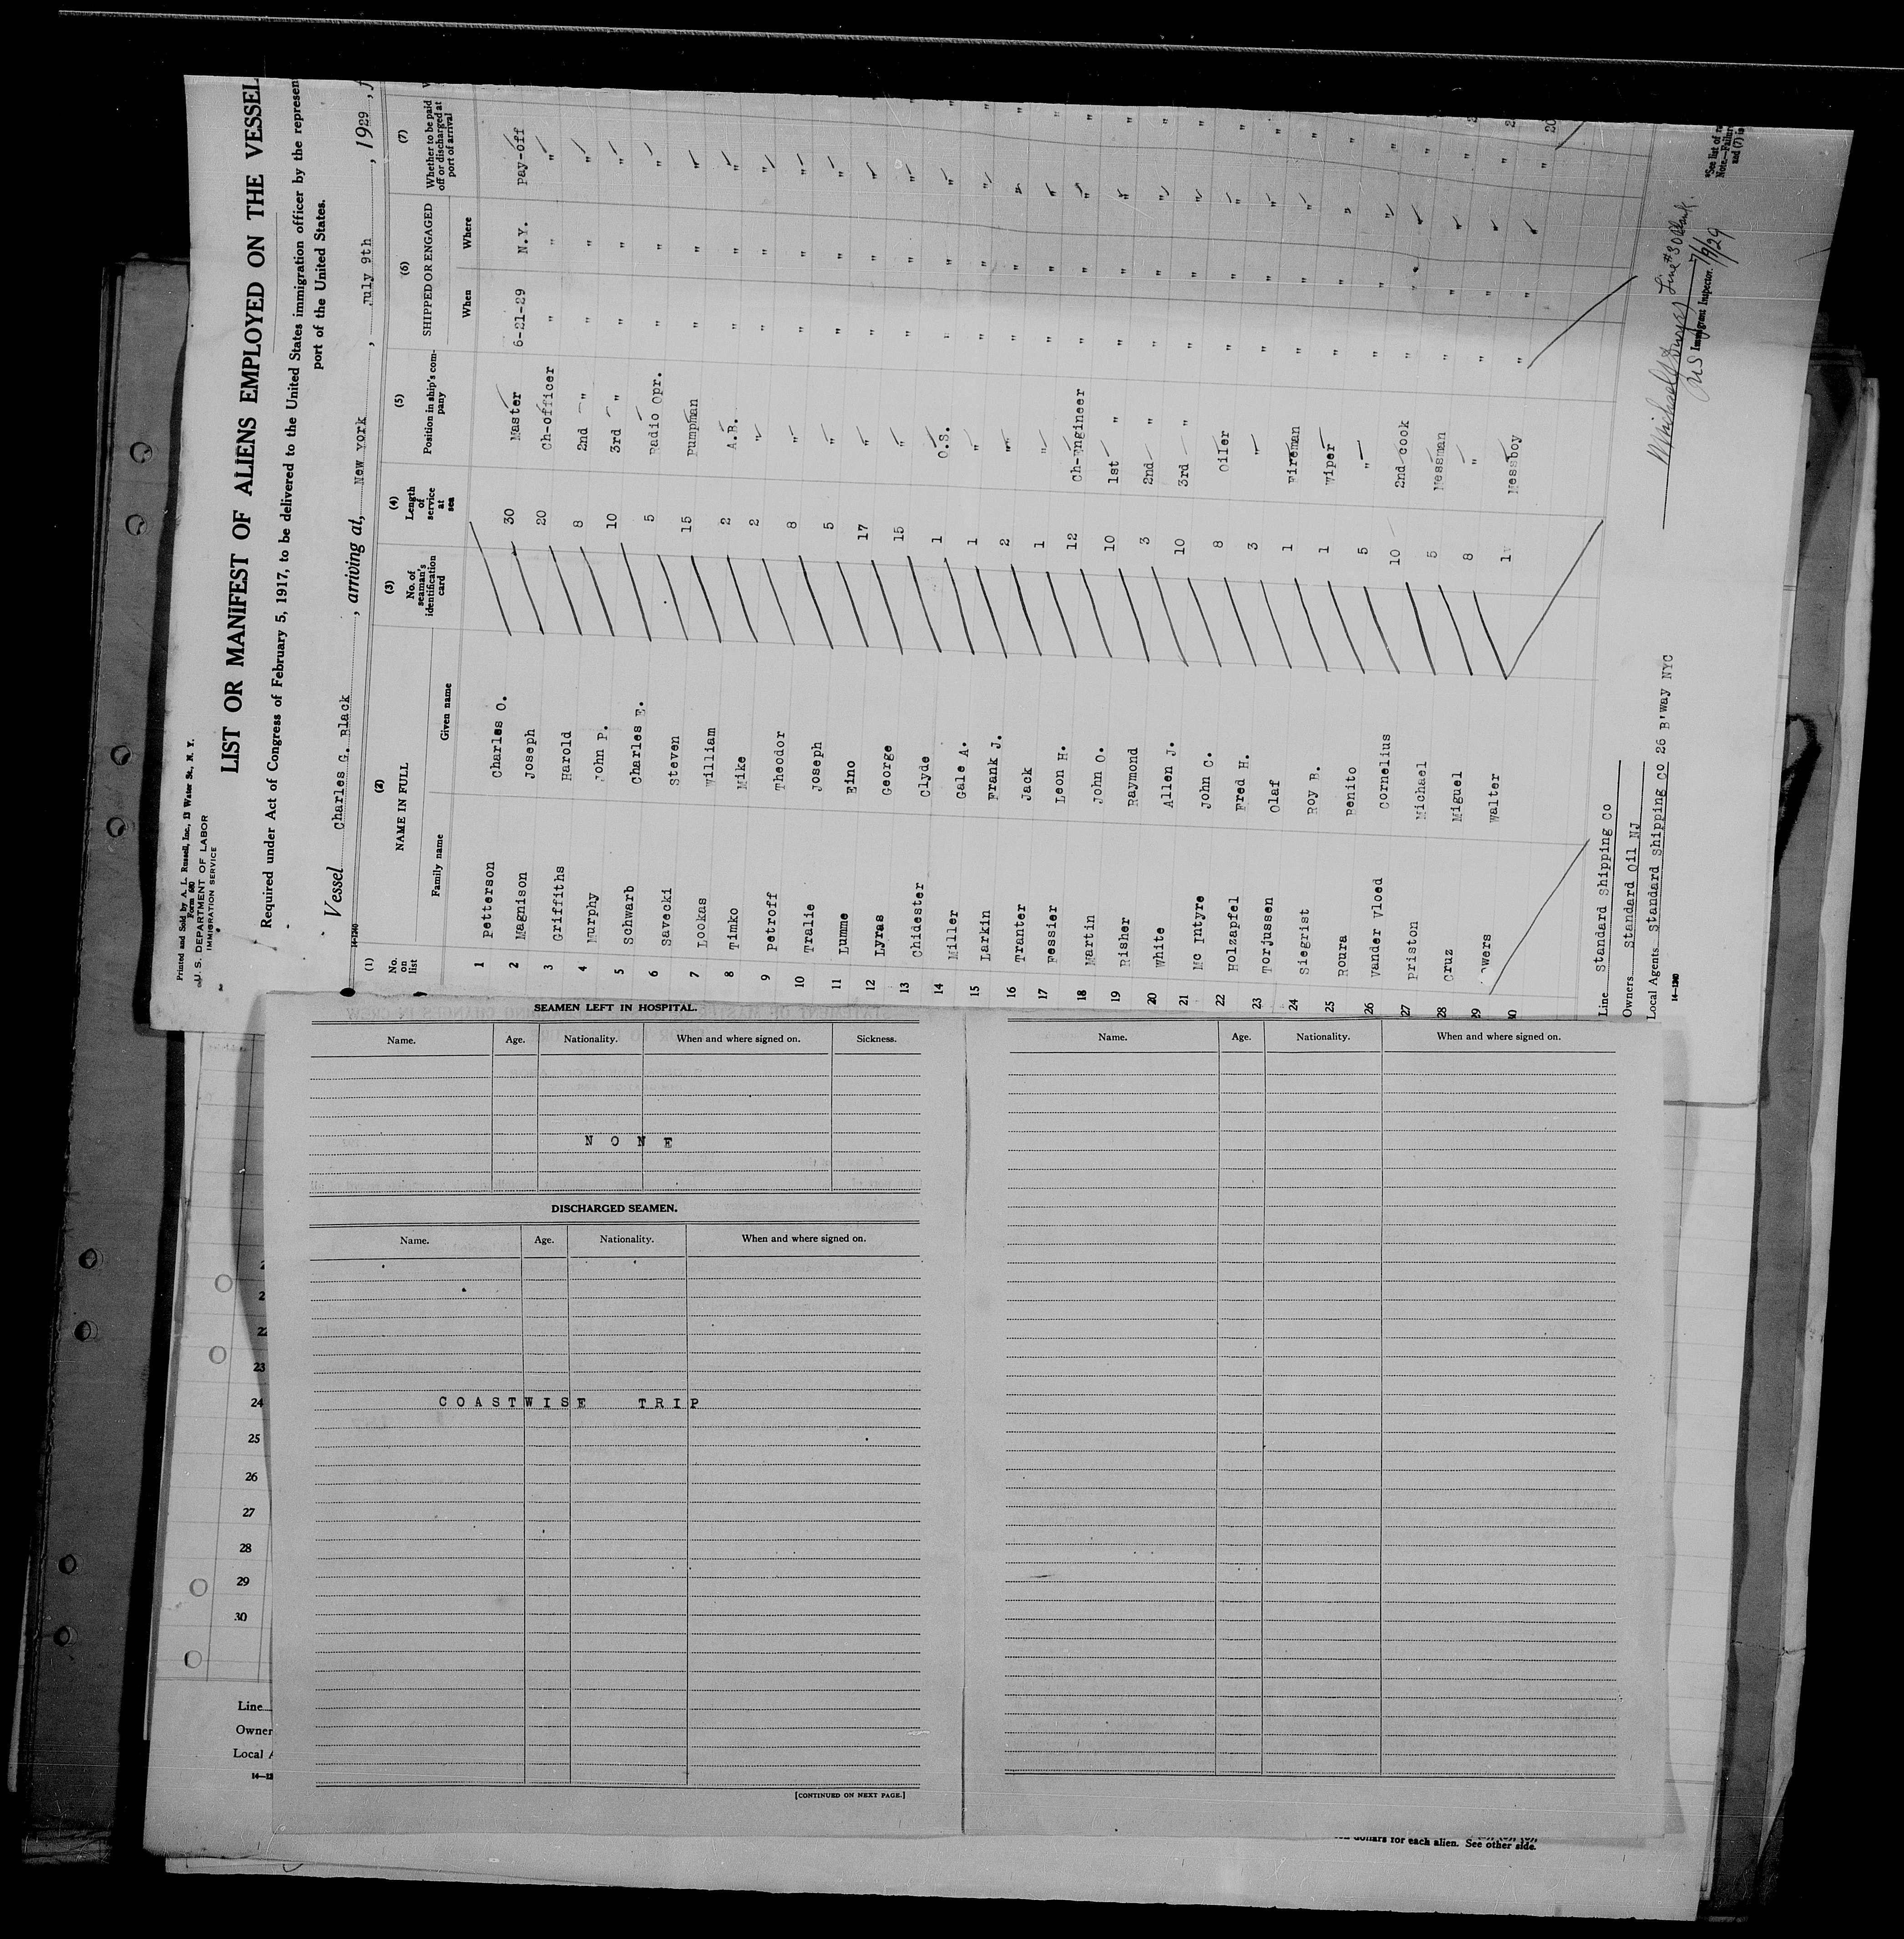 Printed and Sold by A. L. Russell, Inc., 13 Water St., N. Y.
Form 680
U. S. DEPARTMENT OF LABOR
IMMIGRATION SERVICE
LIST OR MANIFEST OF ALIENS EMPLOYED ON THE VESSEL
Required under Act of Congress of February 5, 1917, to be delivered to the United States immigration officer by the represen
port of the United States.
Vessel Charles G. Black, arriving at, New York, July 9th, 1929,
14-1240
(1) (2) (3) (4) (5) (6) (7)
No. on list NAME IN FULL Family name Given name No. of seaman's identification card Length of service at sea Position in ship's company SHIPPED OR ENGAGED When Where Whether to be paid off or discharged at port of arrival
1 Petterson Charles O. 30 Master 6-21-29 N.Y. Pay-off
2 Magnison Joseph 20 Ch-officer " " "
3 Griffiths Harold 8 2nd " " " "
4 Murphy John P. 10 3rd " " " "
5 Schwarb Charles E. 5 Radio Opr. " " "
6 Savecki Steven 15 Pumpman " " "
7 Lookas William 2 A.B. " " "
8 Timko Mike 2 " " " "
9 Petroff Theodor 8 " " " "
10 Tralie Joseph 5 " " " "
11 Lumme Eino 17 " " " "
12 Lyras George 15 " " " "
13 Chidester Clyde 1 O.S. " " "
14 Miller Gale A. 1 " " " "
15 Larkin Frank J. 2 " " " "
16 Tranter Jack 1 " " " "
17 Fessier Leon H. 12 Ch-Engineer " " "
18 Martin John O. 10 1st " " " "
19 Risher Raymond 3 2nd " " " "
20 White Allen J. 10 3rd " " " "
21 Mc Intyre John C. 8 Oiler " " "
22 Holzapfel Fred H. 3 " " " "
23 Torjussen Olaf 1 Fireman " " "
24 Siegrist Roy B. 1 Wiper " " "
25 Roura Benito 5 " " " "
26 Vander Vloed Cornelius 10 2nd cook " " "
27 Priston Michael 5 Messman " " "
28 Cruz Miguel 8 " " " "
29 Walter 1 Messboy " " "
30
Line Standard Shipping Co
Owners Standard Oil NJ
Local Agents Standard Shipping Co 26 B'way NYC
14-1240
Immigrant Inspector. 7/9/29
*See list of
Note.—Failur
and (7) is
SEAMEN LEFT IN HOSPITAL.
Name. Age. Nationality. When and where signed on. Sickness.
NONE
DISCHARGED SEAMEN.
Name. Age. Nationality. When and where signed on.
COASTWISE TRIP
[CONTINUED ON NEXT PAGE.]
Name. Age. Nationality. When and where signed on.
22
23
24
25
26
27
28
29
30
Line
Owner
Local A
dollars for each alien. See other side.